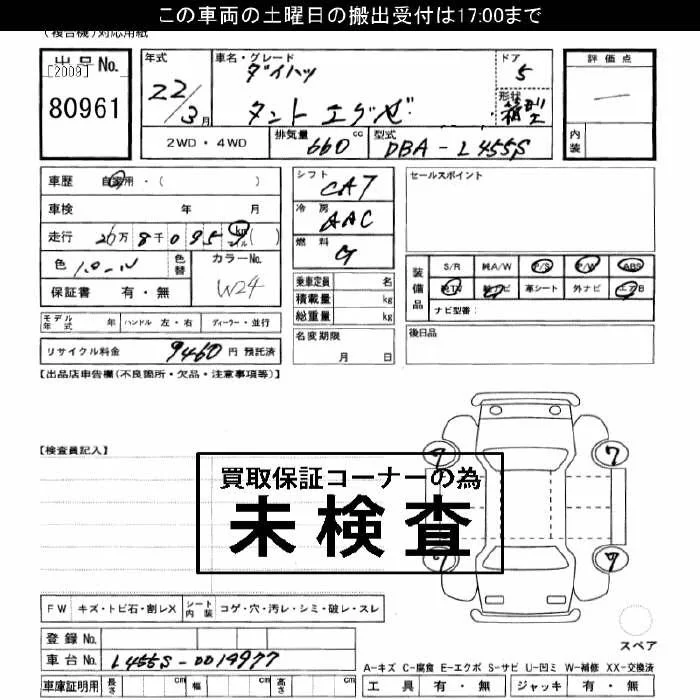 この車両の土曜日の搬出受付は17:00まで
(複合機)対応用紙
出品No.
[2009]
80961
年式
22/3月
車名・グレード
ダイハツ
タント エグゼ
ドア
5
形状
箱型
評価点
―
内装
2WD・4WD
排気量 660 cc
型式 DBA-L455S
車歴 自家用・( )
車検 年 月
走行 26万8千095 km マイル ( )
色 パール
色替
カラーNo. W24
保証書 有・無
シフト CAT
冷房 AAC
燃料 G
乗車定員 名
積載量 kg
総重量 kg
名変期限
月 日
セールスポイント
装備品
S/R 純A/W P/S P/W ABS
純TV 純ナビ 革シート 外ナビ エアB
ナビ型番:
後日品
モデル年式 年 ハンドル 左・右 ディーラー・並行
リサイクル料金 9460 円 預託済
【出品店申告欄(不良箇所・欠品・注意事項等)】
【検査員記入】
買取保証コーナーの為
未検査
7 7
7 7
FW キズ・トビ石・割レX シート内装 コゲ・穴・汚レ・シミ・破レ・スレ
登録No.
車台No. L455S-0014977
スペア
A-キズ C-腐食 E-エクボ S-サビ U-凹ミ W-補修 XX-交換済
車庫証明用 長さ cm 幅 cm 高さ cm
工具 有・無 ジャッキ 有・無